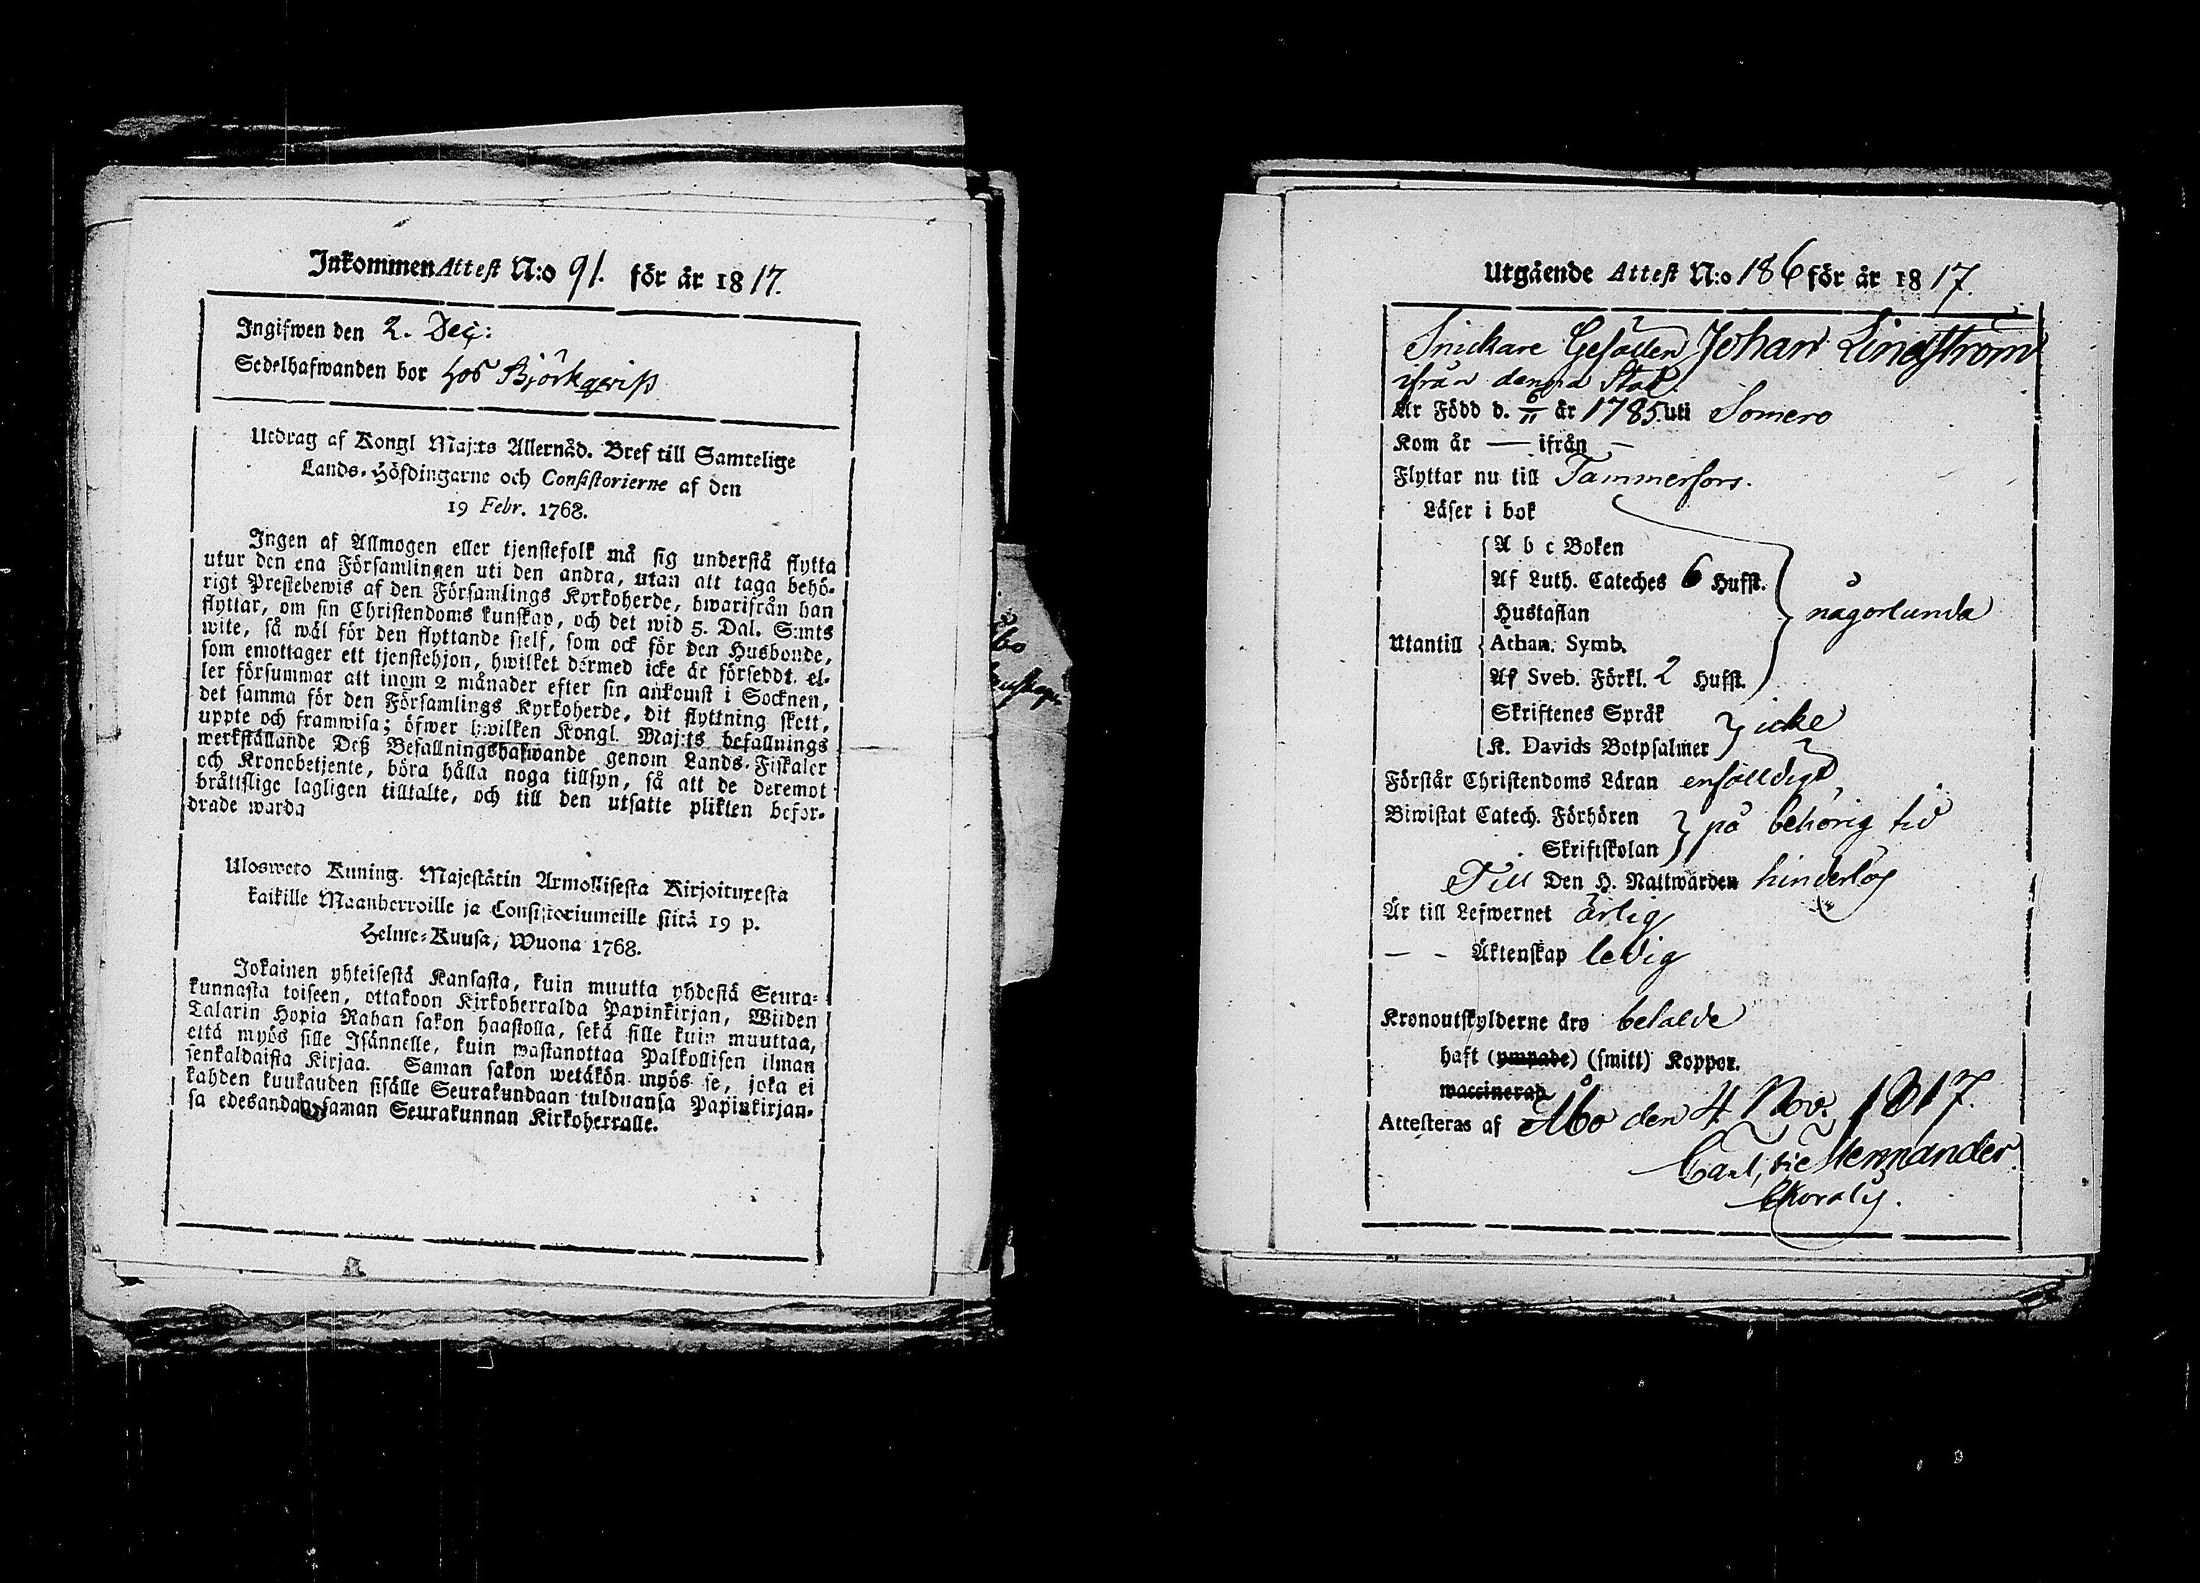 Inkommen Attest N:o 91. för år 1817.
Ingifwen den 2. Dec:
Sedelhafwanden bor hos Björkqwist
Utdrag af Kongl Maj:ts Allernåd. Bref till Samtelige
Lands-Höfdingarne och Consistorierne af den
19 Febr. 1768.
Ingen af Allmogen eller tjenstefolk må sig understå flytta
utur den ena Församlingen uti den andra, utan att taga behö-
rigt Prestebewis af den Församlings Kyrkoherde, hwarifrån han
flyttar, om sin Christendoms kunskap, och det wid 5. Dal. S:mts
wite, så wäl för den flyttande sjelf, som ock för den Husbonde,
som emottager ett tjenstehjon, hwilket dermed icke är försedt, el-
ler försummar att inom 2 månader efter sin ankomst i Socknen,
det samma för den Församlings Kyrkoherde, dit flyttning skett,
uppte och framwisa; öfwer hwilken Kongl. Maj:ts befallnings
werkställande Deß Befallningshafwande genom Lands-Fiskaler
och Kronobetjente, böra hålla noga tillsyn, så att de deremot
bråttslige lagligen tilltalte, och till den utsatte plikten befor-
drade warda
Ulosweto Kuning. Majestätin Armollisesta Kirjoituxesta
kaikille Maanherroille ja Consistoriumeille siitä 19 p.
Helme-Kuusa, Wuona 1768.
Jokainen yhteisestä Kansasta, kuin muutta yhdestä Seura-
kunnasta toiseen, ottakoon Kirkoherralda Papinkirjan, Wiiden
Talarin Hopia Rahan sakon haastolla, sekä sille kuin muuttaa,
että myös sille Isännelle, kuin wastanottaa Palkollisen ilman
senkaldaisita Kirjaa. Saman sakon wetäkön myös se, joka ei
kahden kuukauden sisälle Seurakundaan tulduansa Papinkirjan-
sa edesanda saman Seurakunnan Kirkoherralle.
Åbo
Utgående Attest N:o 186 för år 1817.
Snickare Gesällen Johan Lindström
ifrån denna Stad.
Är Född d. 6/11 år 1785. uti Somero
Kom år — ifrån —
Flyttar nu till Tammerfors.
Läser i bok
A b c Boken
Af Luth. Cateches 6 Hufst.
Hustaflan
någorlunda
Utantill Athan. Symb.
Af Sveb. Förkl. 2 Hufst.
Skriftenes Språk
icke
K. Davids Botpsalmer
Förstår Christendoms Läran enfaldigt
Biwistat Catech. Förhören
på behörig tid
Skriftskolan
Till Den H. Nattwarden hinderlös
Är till Lefwernet ärlig
— - Äktenskap ledig
Kronoutskylderne äro betalde
haft (ympade) (smitt) Koppor.
waccinerad
Attesteras af Åbo den 4 Nov. 1817.